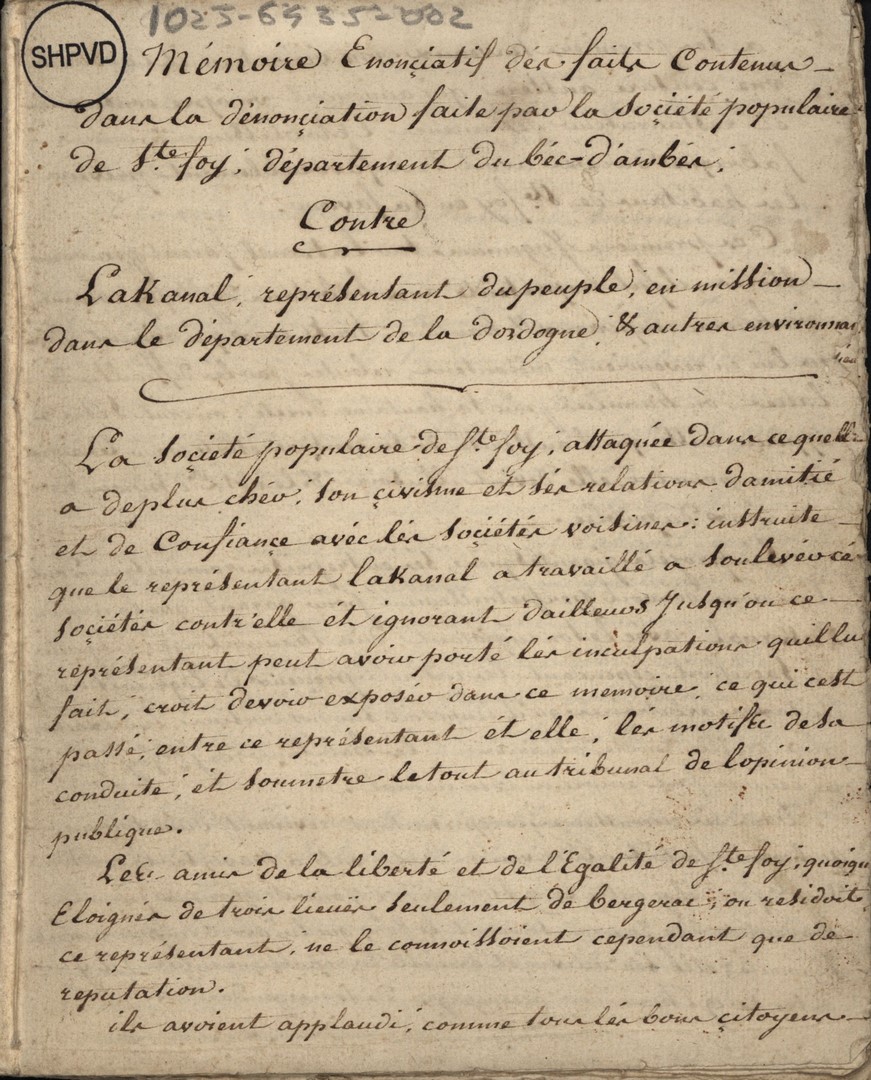 1025-6535-002
SHPVD
Mémoire Enonçiatif dés faits Contenus
dans la dénonçiation faite par la Soçiété populaire
de Ste foy; département du béc-d'ambés;
Contre
Lakanal, représentant du peuple, en mission
dans le département de la dordogne, & autres environnan
La Soçiété populaire de Ste foy, attaquée dans ce quell
a de plus chér, son çivisme et sés relations damitié
et de Confiançe avéc lés Soçiétés voisines: instruite
que le représentant lakanal a travaillé a soulevér cé
Soçiétés contr'elle ét ignorant dailleurs Jusqu'ou ce
représentant peut avoir porté lés inculpations quil lui
fait, croit devoir exposér dans ce memoire, ce qui cest
passé, entre ce représentant ét elle, lés motifs de sa
conduite, ét soumetre le tout au tribunal de lopinion
publique.
Les amis de la liberté et de l'Egalité de Ste foy, quoiqu
Eloignés de trois lieuës seulement de bergerac, ou residoit
ce représentant, ne le connoissoient cependant que de
reputation.
ils avoient applaudi, comme tous lés bons çitoyens